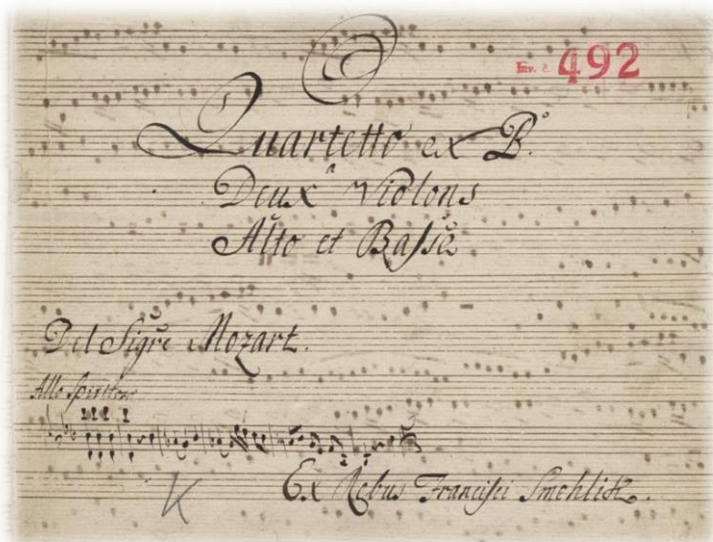 Inv. č. 492
Quartetto ex B.
a
Deux Violons
Alto et Basse
Del Sigre Mozart.
Allo Spiritoso
Ex Rebus Francisci Smehlik.